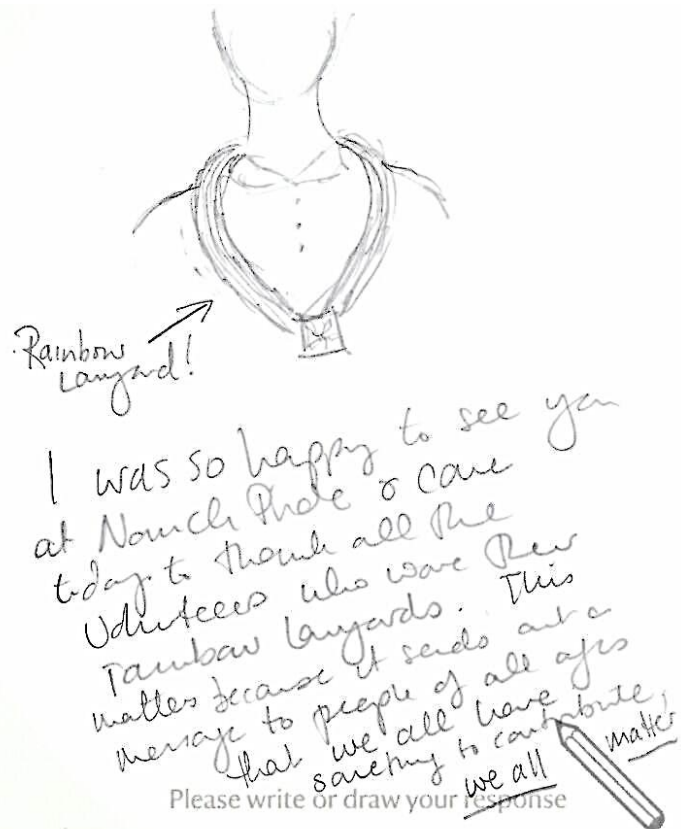 Rainbow
Lanyard!
I was so happy to see you
at Norwich Pride & came
today to thank all the
Volunteers who wore their
rainbow lanyards. This
matters because it sends out a
message to people of all ages
that we all have
something to contribute,
we all matter
Please write or draw your response